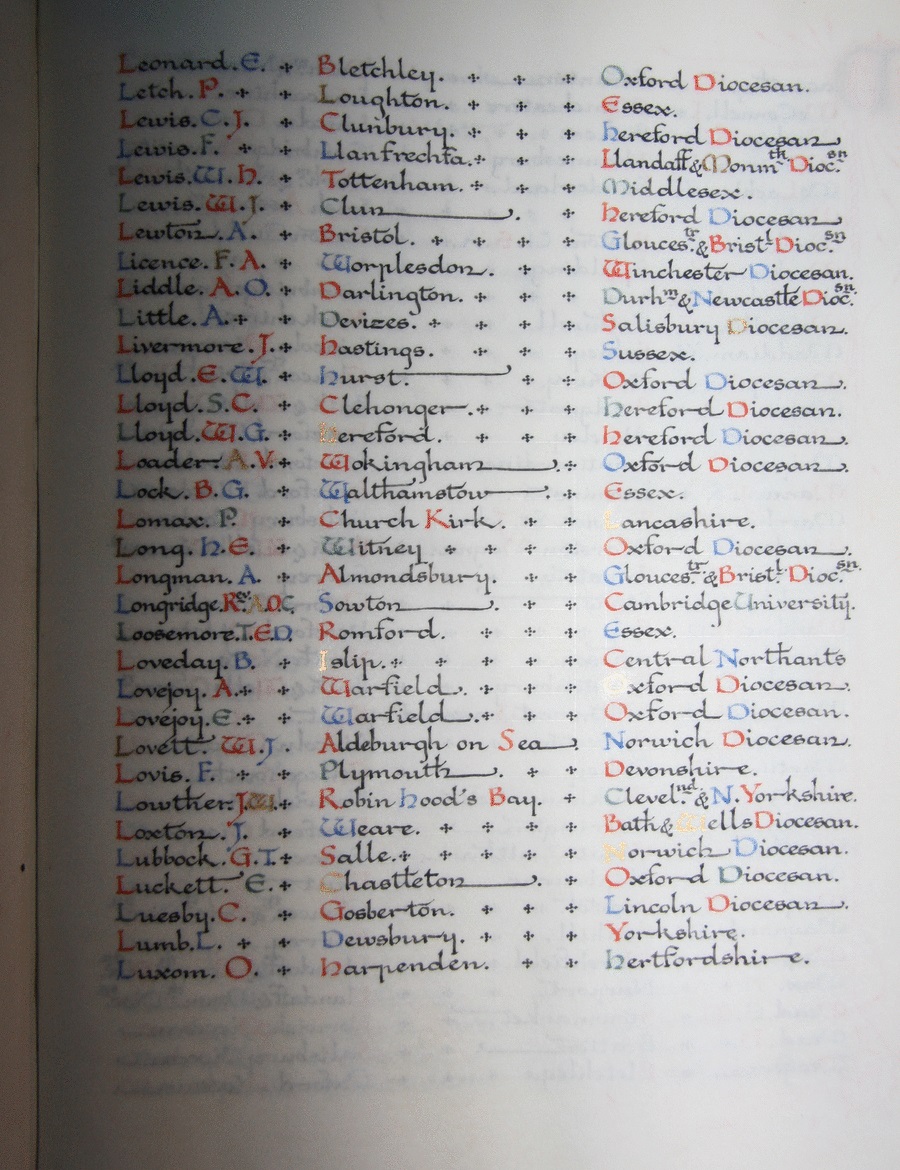 Leonard. E. Bletchley. Oxford Diocesan.
Letch. P. Loughton. Essex.
Lewis. C. J. Clunbury. Hereford Diocesan
Lewis. F. Llanfrechfa. Llandaff & Monmth Diocsn.
Lewis. W. H. Tottenham. Middlesex.
Lewis. W. J. Clun. Hereford Diocesan
Lewton. A. Bristol. Gloucestr. & Bristl. Diocsn.
Licence. F. A. Worplesdon. Winchester Diocesan.
Liddle. A. O. Darlington. Durhm & Newcastle Diocsn.
Little. A. Devizes. Salisbury Diocesan.
Livermore. J. Hastings. Sussex.
Lloyd. E. W. Hurst. Oxford Diocesan.
Lloyd. S. C. Clehonger. Hereford Diocesan.
Lloyd. W. G. Hereford. Hereford Diocesan.
Loader. A. V. Wokingham. Oxford Diocesan.
Lock. B. G. Walthamstow. Essex.
Lomax. P. Church Kirk. Lancashire.
Long. H. E. Witney Oxford Diocesan.
Longman. A. Almondsbury. Gloucestr. & Bristl. Diocsn.
Longridge. Rev. A. O. C. Sowton. Cambridge University.
Loosemore. T. E. D. Romford. Essex.
Loveday. B. Islip. Central Northants
Lovejoy. A. Warfield. Oxford Diocesan.
Lovejoy. E. Warfield. Oxford Diocesan.
Lovett. W. J. Aldeburgh on Sea. Norwich Diocesan.
Lovis. F. Plymouth. Devonshire.
Lowther. J. W. Robin Hood's Bay. Clevelnd. & N. Yorkshire.
Loxton. J. Weare. Bath & Wells Diocesan.
Lubbock. G. T. Salle. Norwich Diocesan.
Luckett. E. Chastleton. Oxford Diocesan.
Luesby. C. Gosberton. Lincoln Diocesan.
Lumb. L. Dewsbury. Yorkshire.
Luxom. O. Harpenden. Hertfordshire.